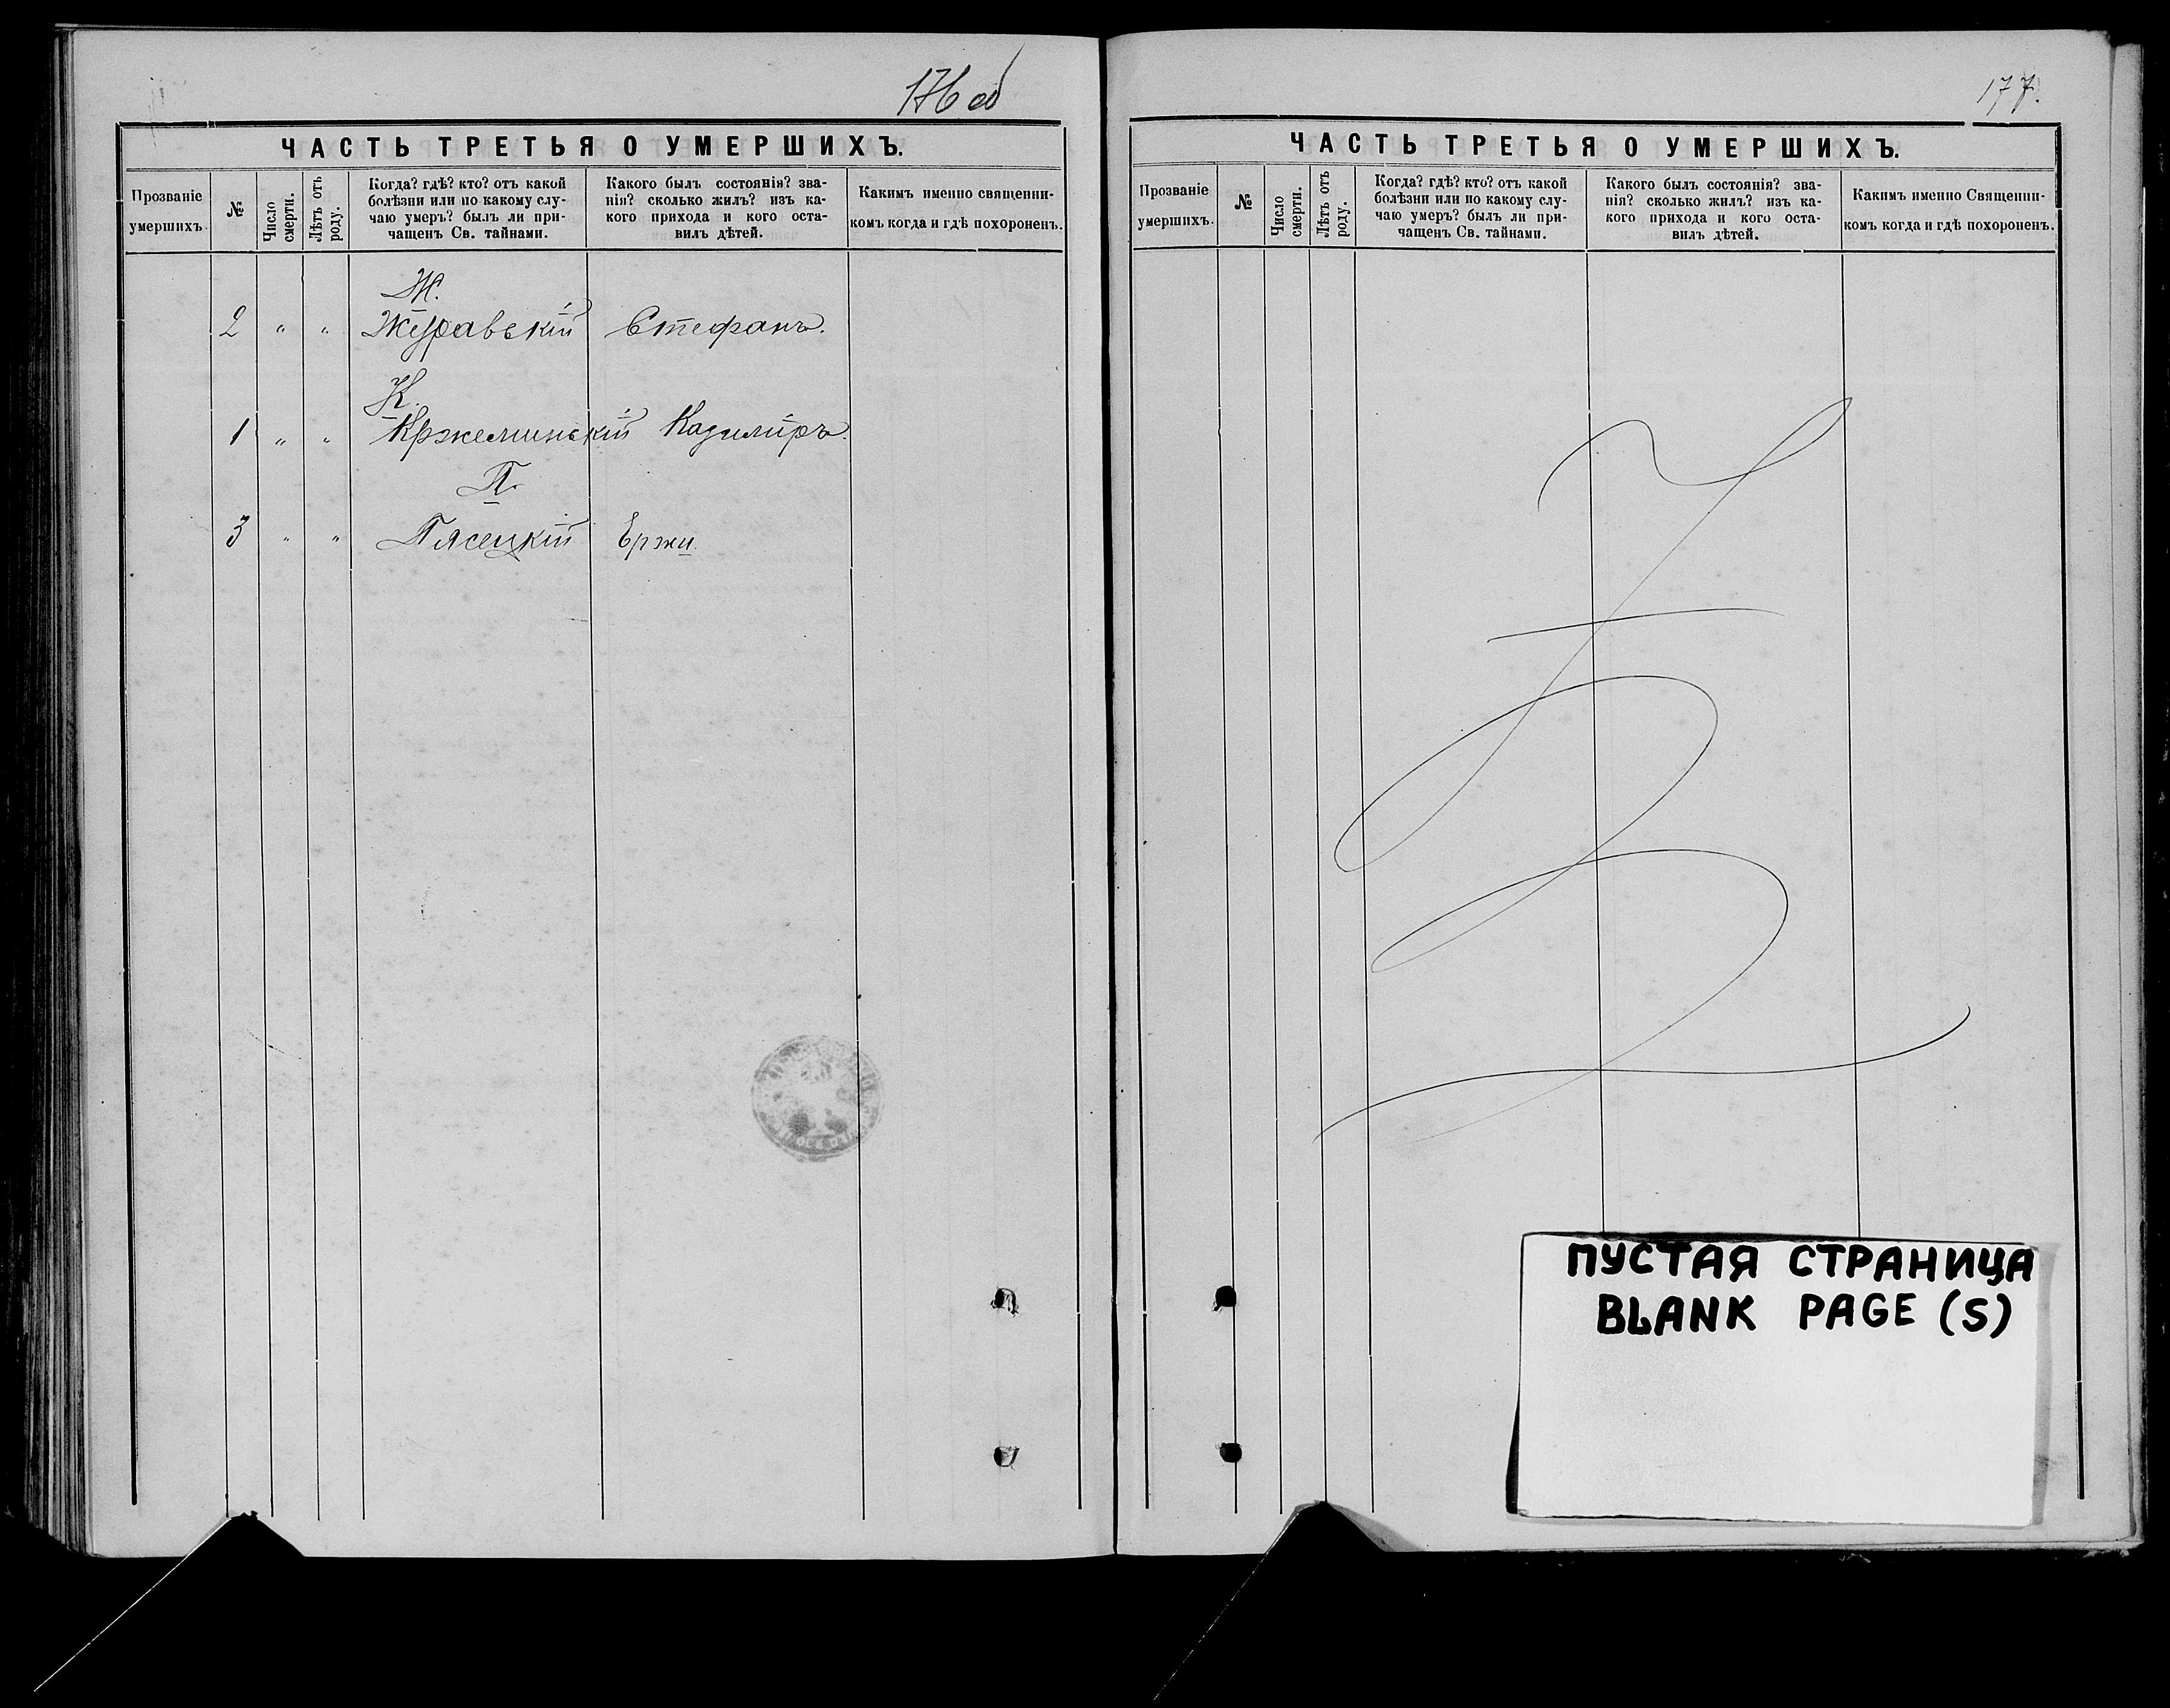 176 об
ЧАСТЬ ТРЕТЬЯ О УМЕРШИХЪ.
Прозваніе умершихъ.
№
Число смерти.
Лѣтъ отъ роду.
Когда? гдѣ? кто? отъ какой
болѣзни или по какому слу-
чаю умеръ? былъ ли при-
чащенъ Св. тайнами.
Какого былъ состоянія? зва-
нія? сколько жилъ? изъ ка-
кого прихода и кого оста-
вилъ дѣтей.
Какимъ именно священни-
комъ когда и гдѣ похороненъ.
Ж.
2 " " Журавскій Стефанъ.
К.
1 " " Кржеминскій Казимиръ.
П.
3 " " Пясецкій Ержи
177.
ЧАСТЬ ТРЕТЬЯ О УМЕРШИХЪ.
Прозваніе умершихъ.
№
Число смерти.
Лѣтъ отъ роду.
Когда? гдѣ? кто? отъ какой
болѣзни или по какому слу-
чаю умеръ? былъ ли при-
чащенъ Св. тайнами.
Какого былъ состоянія? зва-
нія? сколько жилъ? изъ ка-
кого прихода и кого оста-
вилъ дѣтей.
Какимъ именно Священни-
комъ когда и гдѣ похороненъ.
ПУСТАЯ СТРАНИЦА
BLANK PAGE (S)